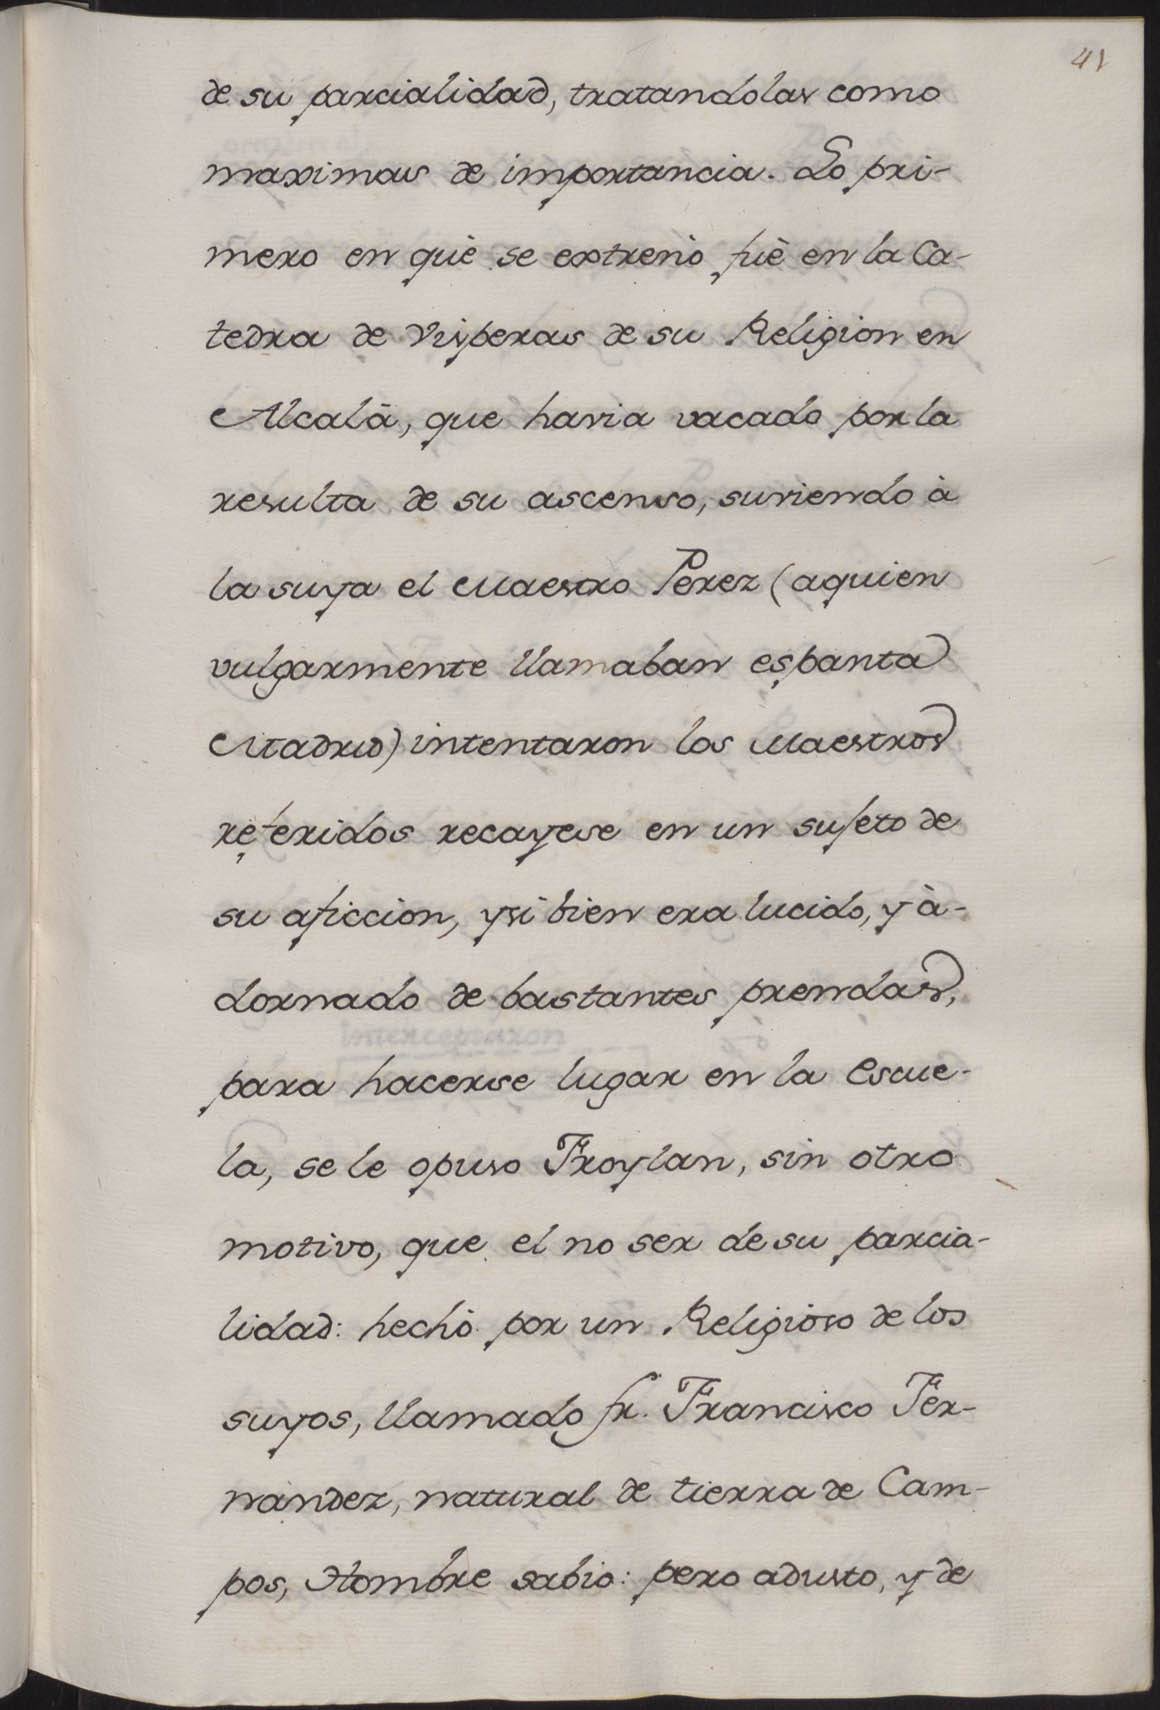 41
de su parcialidad, tratandolas como
maximas de importancia. Lo pri-
mero en què se extrenò fuè en la Ca-
tedra de Visperas de su Religion en
Alcalà, que havia vacado por la
resulta de su ascenso, suviendo à
la suya el Maestro Perez (aquien
vulgarmente llamaban espanta
Madrid) intentaron los Maestros
referidos recayese en un sujeto de
su aficcion, ysi bien era lucido, y à-
dornado de bastantes prendas,
para hacerse lugar en la Escue-
la, se le opuso Froylan, sin otro
motivo, que el no ser de su parcia-
lidad: hechò por un Religioso de los
suyos, llamado fr. Francisco Fer-
nandez, natural de tierra de Cam-
pos, Hombre sabio: pero adusto, y de